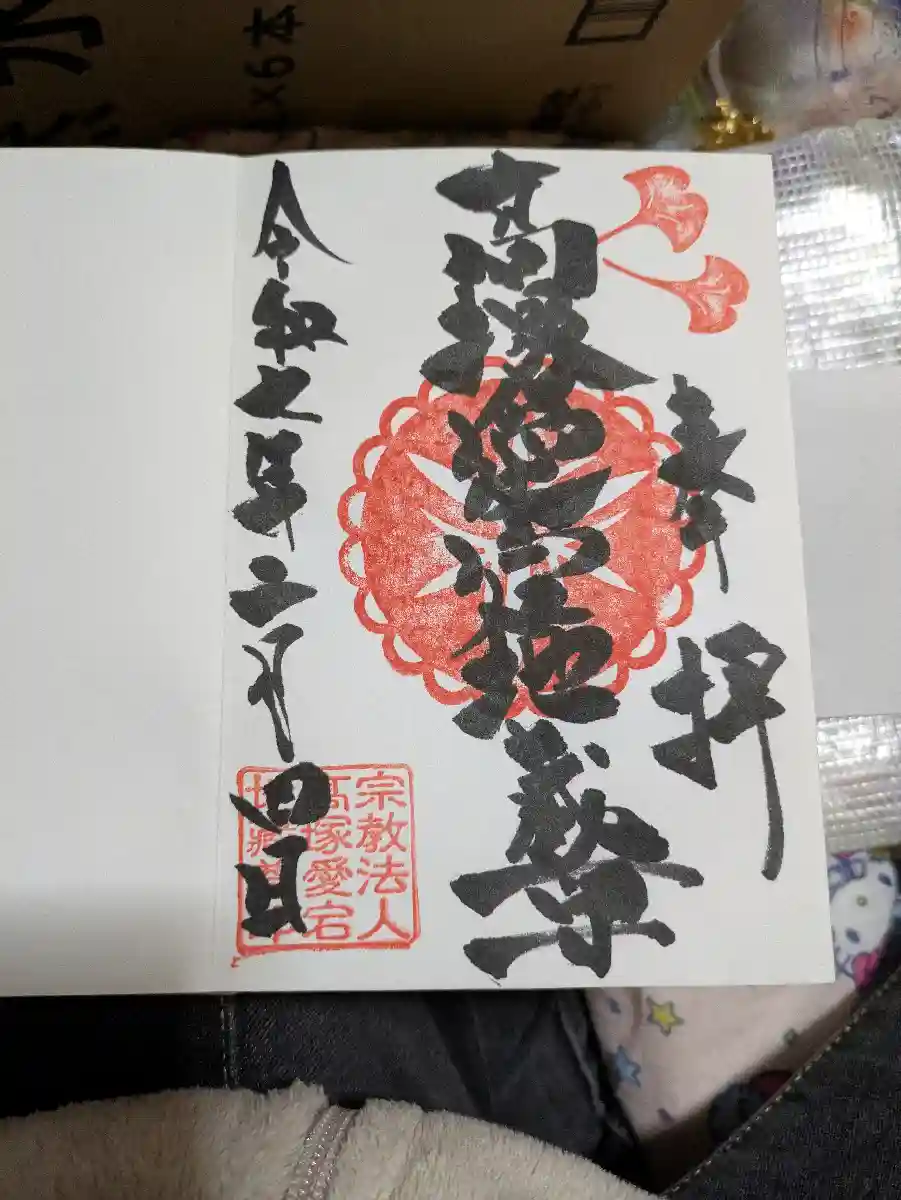 奉拝
高塚愛宕地蔵尊
令和七年二月四日
宗教法人
高塚愛宕
地藏尊
水
×6本